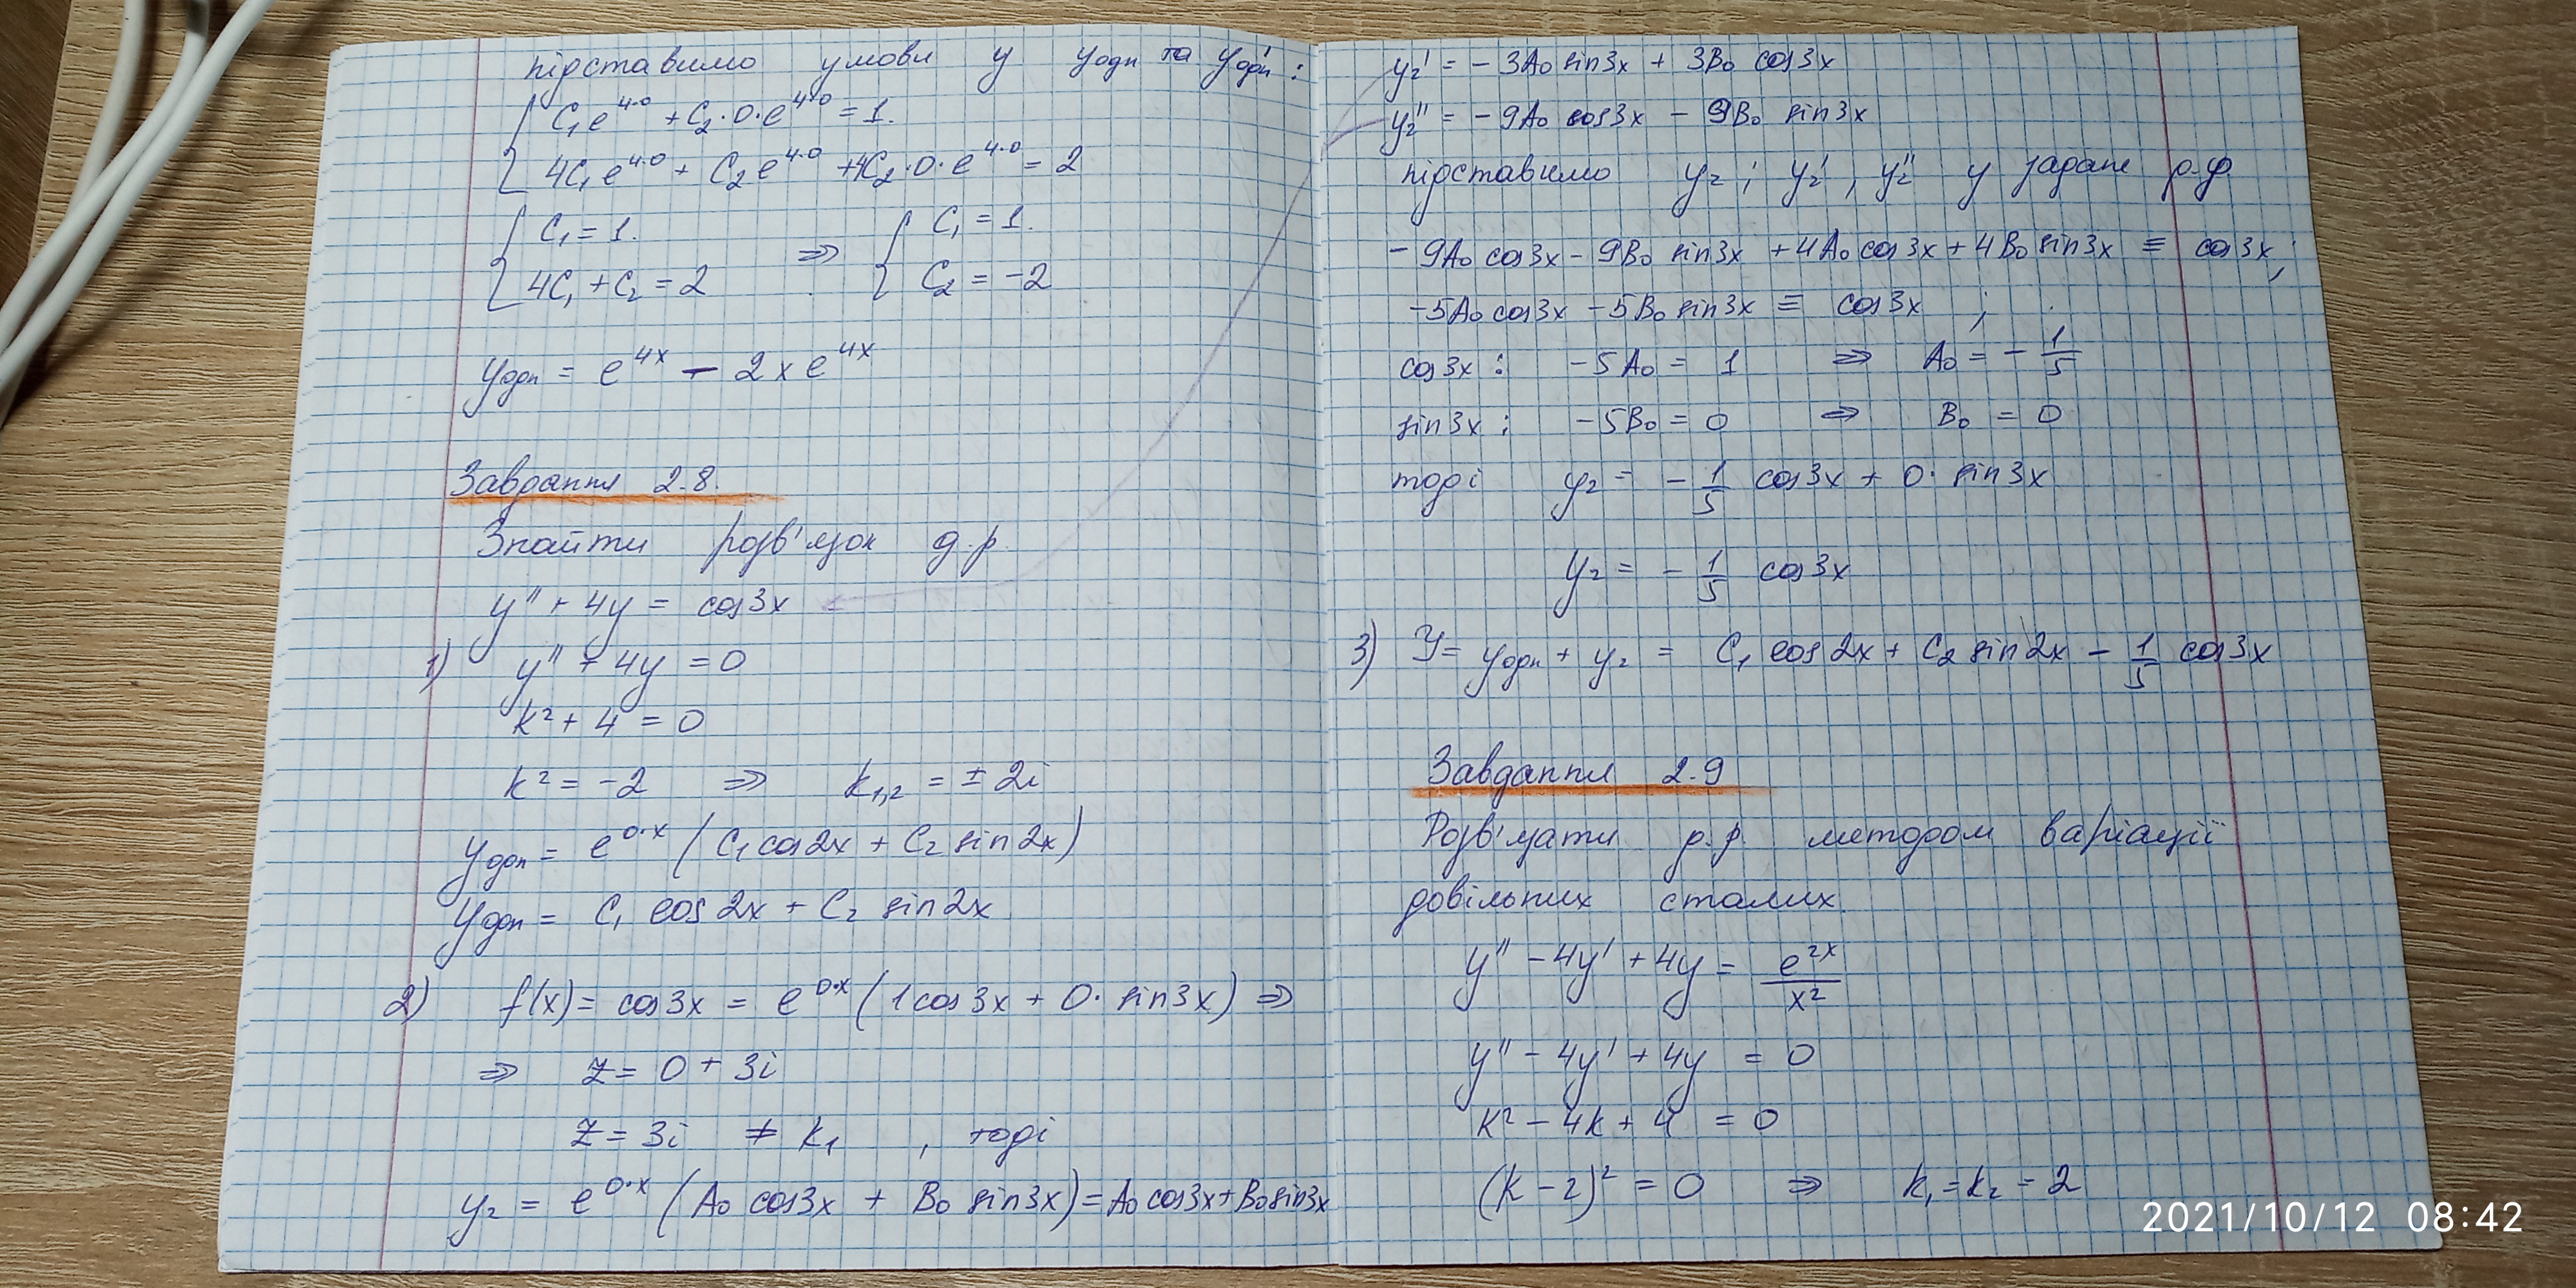 підставимо умови у yодн та y'одн :
C₁e^{4·0} + C₂·0·e^{4·0} = 1.
4C₁e^{4·0} + C₂e^{4·0} + 4C₂·0·e^{4·0} = 2
C₁ = 1. ⇒ C₁ = 1.
4C₁ + C₂ = 2 C₂ = -2
yодн = e^{4x} - 2xe^{4x}
Завдання 2.8.
Знайти розв'язок д.р.
y'' + 4y = cos3x
1) y'' + 4y = 0
k² + 4 = 0
k² = -2 ⇒ k₁,₂ = ± 2i
yодн = e^{0·x} (C₁cos2x + C₂ sin2x)
yодн = C₁ cos2x + C₂ sin2x
2) f(x) = cos3x = e^{0·x} (1cos3x + 0· sin3x) ⇒
⇒ z = 0 + 3i
z = 3i ≠ k₁ , тоді
y₂ = e^{0·x} (A₀ cos3x + B₀ sin3x) = A₀ cos3x + B₀ sin3x
y₂' = - 3A₀ sin3x + 3B₀ cos3x
y₂'' = - 9A₀ cos3x - 9B₀ sin3x
підставимо y₂ ; y₂' , y₂'' у задане р.ф.
- 9A₀ cos3x - 9B₀ sin3x + 4A₀ cos3x + 4B₀ sin3x ≡ cos3x ;
-5A₀ cos3x - 5B₀ sin3x ≡ cos3x ;
cos3x : -5A₀ = 1 ⇒ A₀ = - 1/5
sin3x : -5B₀ = 0 ⇒ B₀ = 0
тоді y₂ = - 1/5 cos3x + 0· sin3x
y₂ = - 1/5 cos3x
3) Y = yодн + y₂ = C₁ cos2x + C₂ sin2x - 1/5 cos3x
Завдання 2.9
Розв'язати д.р. методом варіації
довільних сталих.
y'' - 4y' + 4y = e^{2x}/x²
y'' - 4y' + 4y = 0
k² - 4k + 4 = 0
(k - 2)² = 0 ⇒ k₁ = k₂ = 2
2021/10/12 08:42